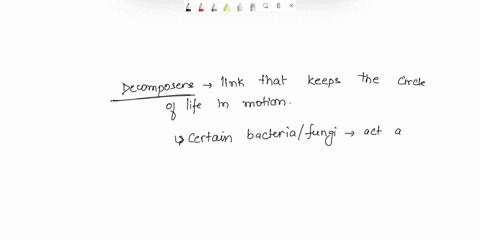 Decomposers → link that keeps the circle
of life in motion.
↳ Certain bacteria/fungi → act a